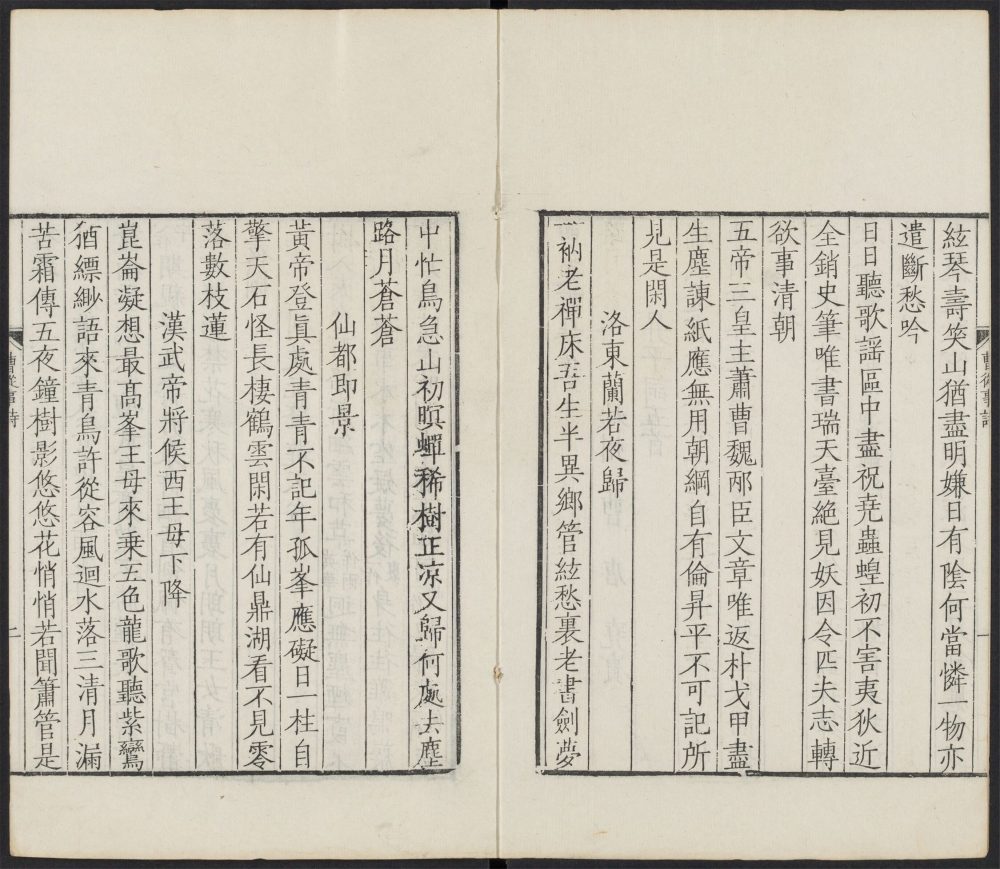 絃琴壽笑山猶盡明嫌日有陰何當憐一物亦
遣斷愁吟
日日聽歌謡區中盡祝堯蟲蝗初不害夷狄近
全銷史筆唯書瑞天臺絶見妖因令匹夫志轉
欲事清朝
五帝三皇主蕭曹魏邴臣文章唯返朴戈甲盡
生塵諫紙應無用朝綱自有倫昇平不可記所
見是閑人
洛東蘭若夜歸
一衲老禪床吾生半異鄉管絃愁裏老書劍夢
中忙鳥急山初暝蟬稀樹正凉又歸何處去塵
路月蒼蒼
仙都即景
黃帝登眞處青青不記年孤峯應礙日一柱自
擎天石怪長棲鶴雲閑若有仙鼎湖看不見零
落數枝蓮
漢武帝將候西王母下降
崑崙凝想最髙峯王母來乗五色龍歌聽紫鸞
猶縹緲語來青鳥許從容風迴水落三清月漏
苦霜傳五夜鐘樹影悠悠花悄悄若聞簫管是
曹從事詩